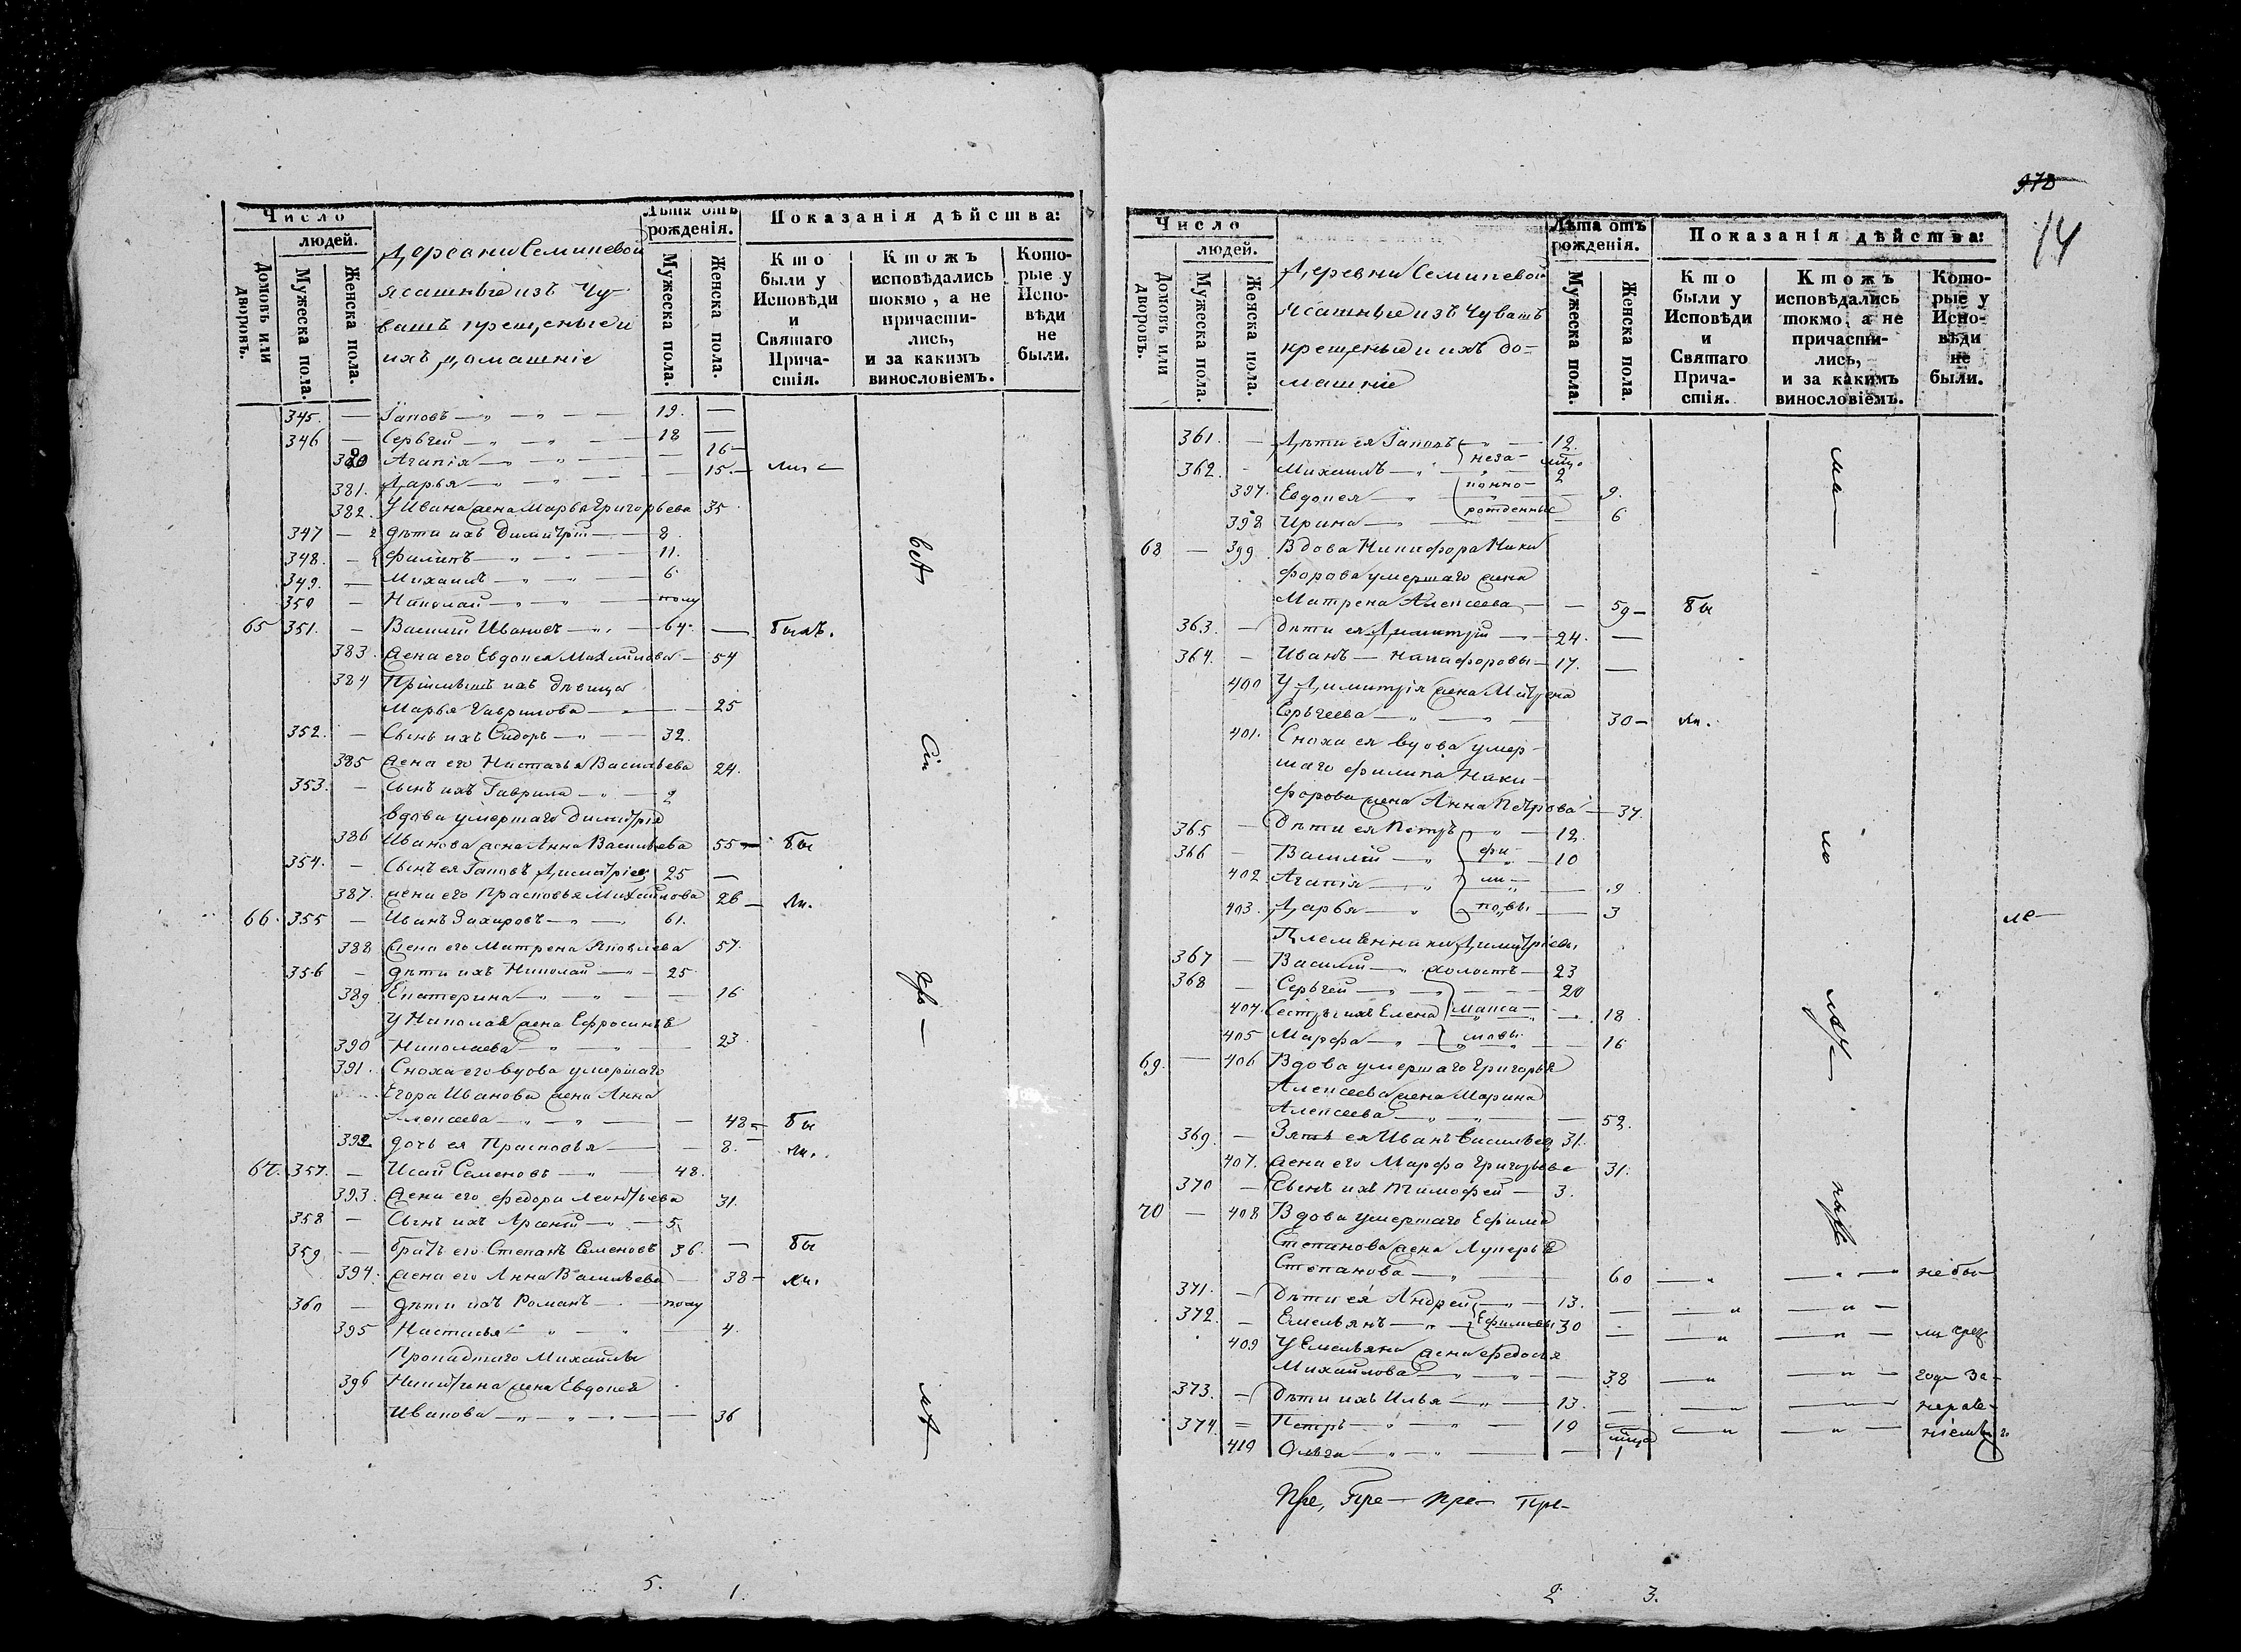 Число
людей.
Домовъ или дворовъ.
Мужеска пола.
Женска пола.
Деревни Семиневой
ясашные изъ Чу-
вашъ крещеные и
ихъ домашніе
Лѣта отъ рожденія.
Мужеска пола.
Женска пола.
Показанія дѣйства:
Кто были у Исповѣди и Святаго Прича-стія.
Ктожъ исповѣдались токмо, а не причасти-лись, и за какимъ винословіемъ.
Кото-рые у Испо-вѣди не были.
345. — Іаковъ — 19. —
346 — Сергѣй — 18 —
380 Агапія — 16 —
381. Дарья — 15. —
382. У Ивана жена Марья Григорьева 35
347 — дѣти ихъ Димитрій — 8.
348. — Филипъ — 11.
349. — Михаилъ — 6
350 — Николай — полу
65 351. — Василій Ивановъ — 64. — былъ.
383. жена его Евдокея Михайлова — 54
384 Пріимышъ ихъ дѣвица
Марья Гаврилова — 25
352. — Сынъ ихъ Сидоръ — 32.
385 жена его Настасья Васильева 24.
353. — Сынъ ихъ Гаврила — 2
вдова умершаго Димитрія
386 Иванова жена Анна Васильева 55 — бы
354. — Сынъ ея Іаковъ Димитріевъ 25 —
387. жена его Прасковья Михайлова 26 — ли.
66. 355 — Иванъ Захаровъ — 61.
388 жена его Матрена Яковлева 57.
356 — дѣти ихъ Николай — 25
389 Екатерина — 16
У Николая жена Ефросинья
390 Николаева — 23
391. Сноха его вдова умершаго
Егора Иванова жена Анна
Алексеева — 48 — бы
392 дочь ея Прасковья — 8. ли.
67. 357. — Исай Семеновъ — 48.
393. жена его Федора Леонтьева 31.
358 — Сынъ ихъ Арсеній — 5.
359 — братъ его Степанъ Семеновъ 36. — бы
394. жена его Анна Васильева 38 — ли.
360 — дѣти ихъ Романъ — полу
395 Настасья — 4.
Пропадшаго Михайлы
396 Никитина жена Евдокея
Иванова — 36
5. 1.
978
14
Число
людей.
Домовъ или дворовъ.
Мужеска пола.
Женска пола.
Деревни Семиневой
Ясашные изъ Чувашъ
крещеные и ихъ до-
машніе
Лѣта отъ рожденія.
Мужеска пола.
Женска пола.
Показанія дѣйства:
Кто были у Исповѣди и Святаго Прича-стія.
Ктожъ исповѣдались токмо, а не причасти-лись, и за какимъ винословіемъ.
Кото-рые у Испо-вѣди не были.
361. — Дѣти ея Іаковъ — 12.
362. — Михаилъ — неза- 2
397. Евдокея — конно- 9.
398 Ирина — рожденные 6
68 — 399 Вдова Никифора Ники
форова умершаго жена
Матрена Алексеева — 59 — бы
363. — Дѣти ея Димитрій — 24. —
364. — Иванъ — Никифоровы — 17. —
400 У Димитрія жена Матрена
Сергѣева — 30 — ли.
401. Сноха ея вдова умер-
шаго Филипа Ники-
форова жена Анна Петрова — 37.
365 — Дѣти ея Петръ — 12.
366 — Василій — фи- — 10
402 Агапія — ли- — 9
403. Дарья — повы — 3
Племянники Димитріевы
367 — Василій — холостъ — 23
368 — Сергѣй — 20
404. Сестры ихъ Елена макси- 18
405 Марфа — мовы — 16
69. — 406 Вдова умершаго Григорья
Алексеева жена Марина
Алексеева — 52.
369. — Зять ея Иванъ Васильевъ 31.
407. жена его Марфа Григорьева 31.
370 — Сынъ ихъ Тимофей — 3.
70 — 408 Вдова умершаго Ефима
Степанова жена Лукерья
Степанова — 60 — не бы-
371. — Дѣти ея Андрей — 13.
372. — Емельянъ — Ефимовы 30
409 У Емельяна жена Федосья
Михайлова — 38
373. — Дѣти ихъ Илья — 13.
374. — Петръ — 10
410 Ольга — 1
2 3.